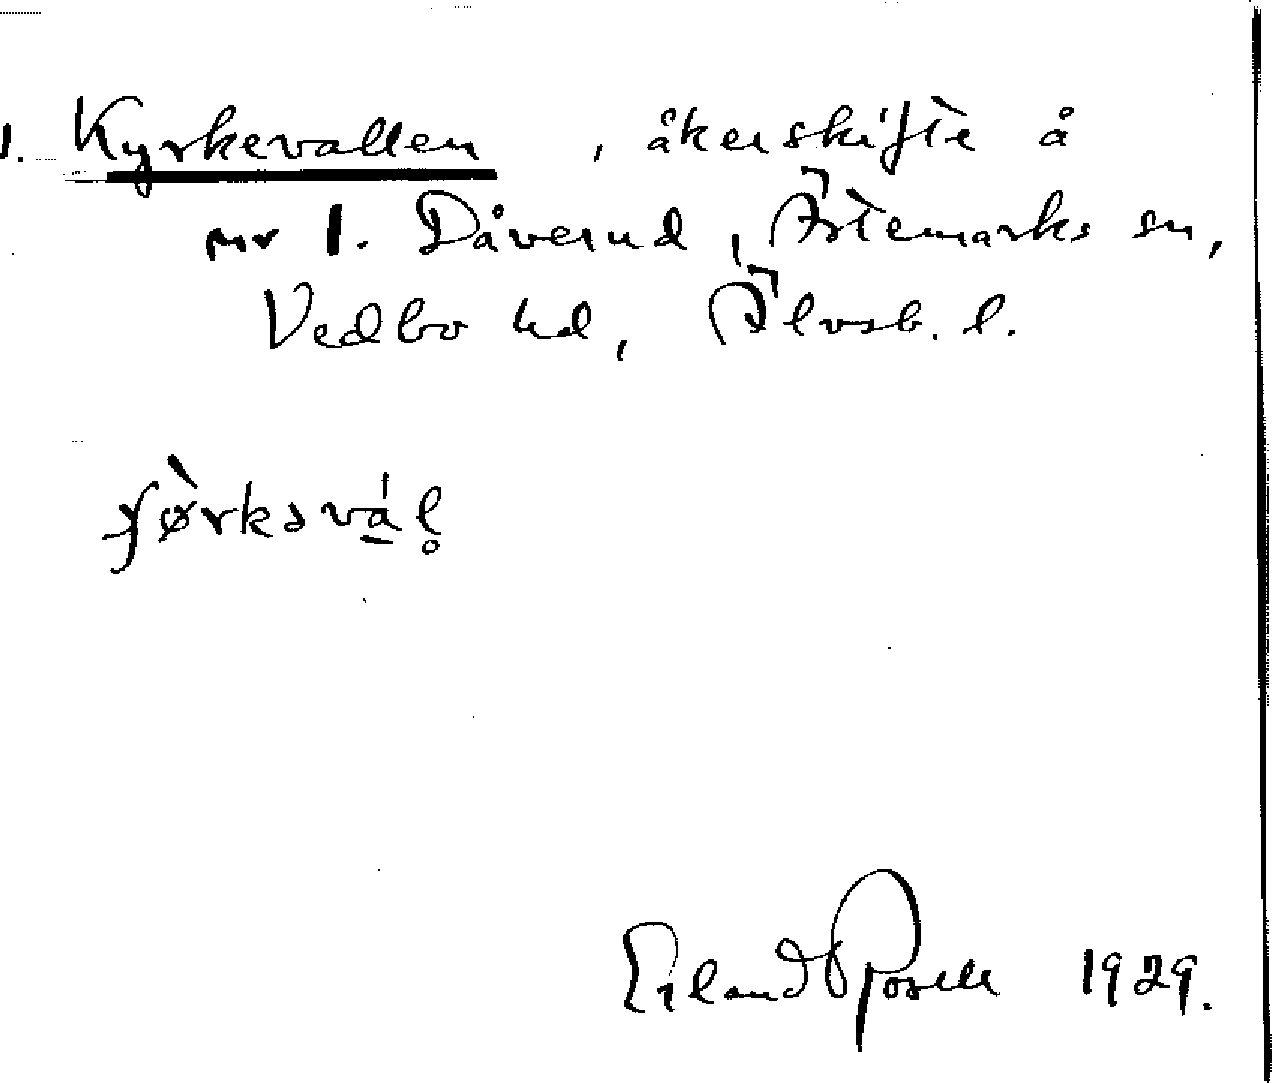 1. Kyrkevallen , åkerskifte å
nr 1. Dåverud, Ärtemarks sn,
Vedbo hd, Älvsb. l.
Erland Rosell 1929.